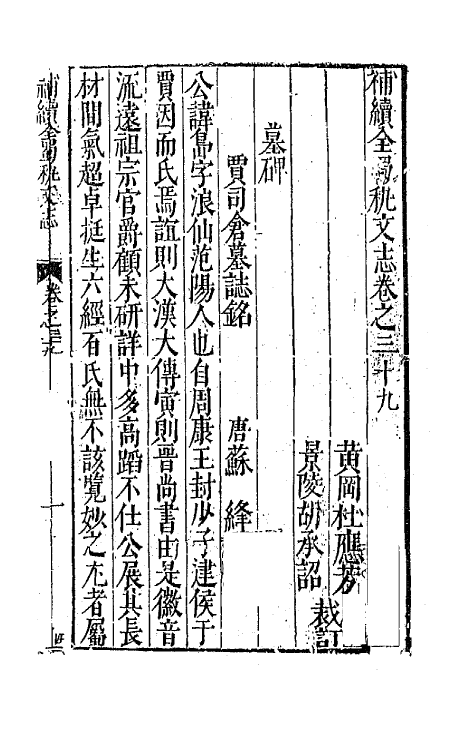 補續全蜀秇文志卷之三十九
黃岡杜應芳
景陵胡承詔 裁訂
墓碑
賈司倉墓誌銘 唐蘇絳
公諱島字浪仙范陽人也自周康王封少子建侯于
賈因而氏焉誼則大漢大傳寅則晉尚書由是徽音
流遠祖宗官爵顧未研詳中多高蹈不仕公展其長
材間氣超卓挺生六經百氏無不該覽妙之尤者屬
補續全蜀秇文志
卷之三十九
一